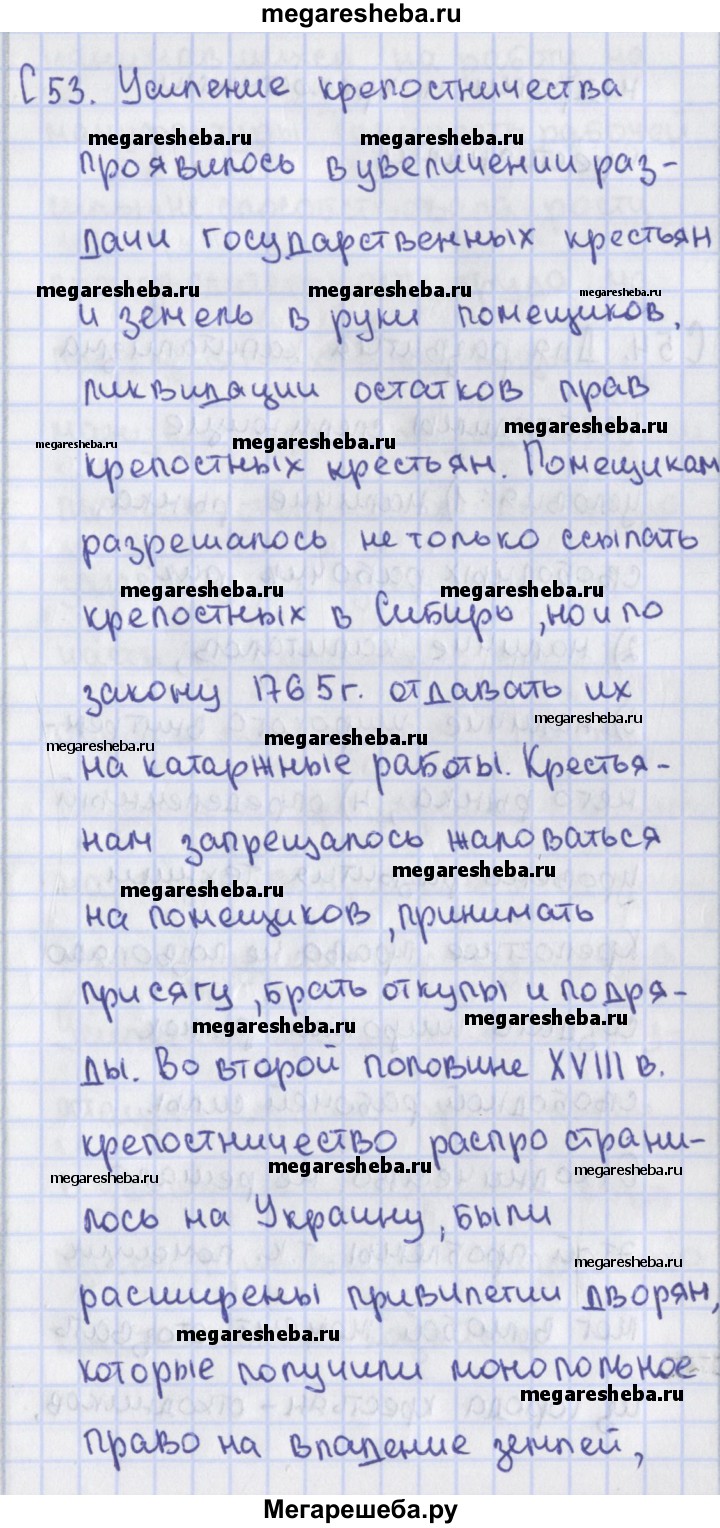 megaresheba.ru
С 53. Усиление крепостничества
megaresheba.ru megaresheba.ru
проявилось в увеличении раз-
дачи государственных крестьян
megaresheba.ru megaresheba.ru megaresheba.ru
и земель в руки помещиков,
ликвидации остатков прав
megaresheba.ru megaresheba.ru megaresheba.ru
крепостных крестьян. Помещикам
разрешалось не только ссылать
megaresheba.ru megaresheba.ru
крепостных в Сибирь, но и по
закону 1765г. отдавать их
megaresheba.ru megaresheba.ru megaresheba.ru
на катаржные работы. Крестья-
нам запрещалось жаловаться
megaresheba.ru megaresheba.ru
на помещиков, принимать
присягу, брать откупы и подря-
megaresheba.ru megaresheba.ru
ды. Во второй половине XVIII в.
крепостничество распространи-
megaresheba.ru megaresheba.ru megaresheba.ru
лось на Украину, были
megaresheba.ru
расширены привилегии дворян,
megaresheba.ru
которые получили монопольное
megaresheba.ru
право на владение землей,
Мегарешеба.ру